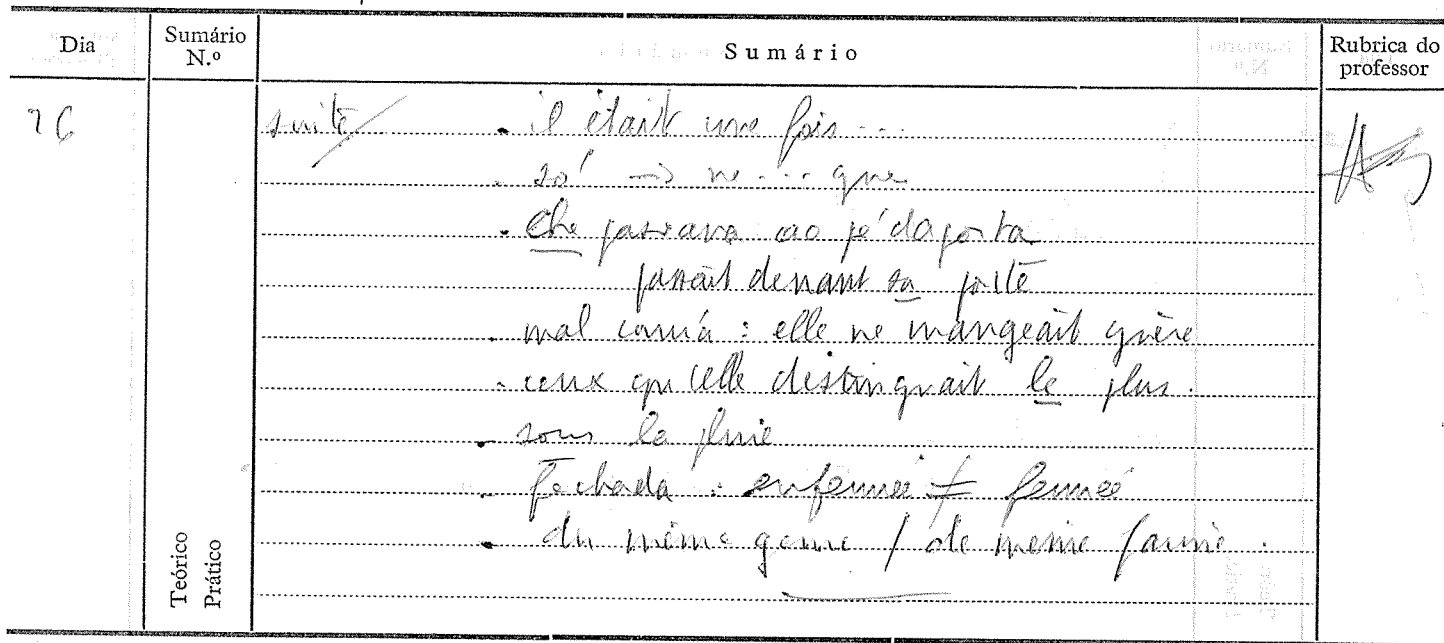 Dia
Sumário N.º
Sumário
Rubrica do professor
26
suite/ . il était une fois ...
. só → ne ... que
. Che passava ao pé da porta
passait devant sa porte
. mal comia : elle ne mangeait guère
. ceux qu'elle distinguait le plus.
. sous la pluie
. fechada : enfermée ≠ fermée
. du même genre / de même
Teórico
Prático